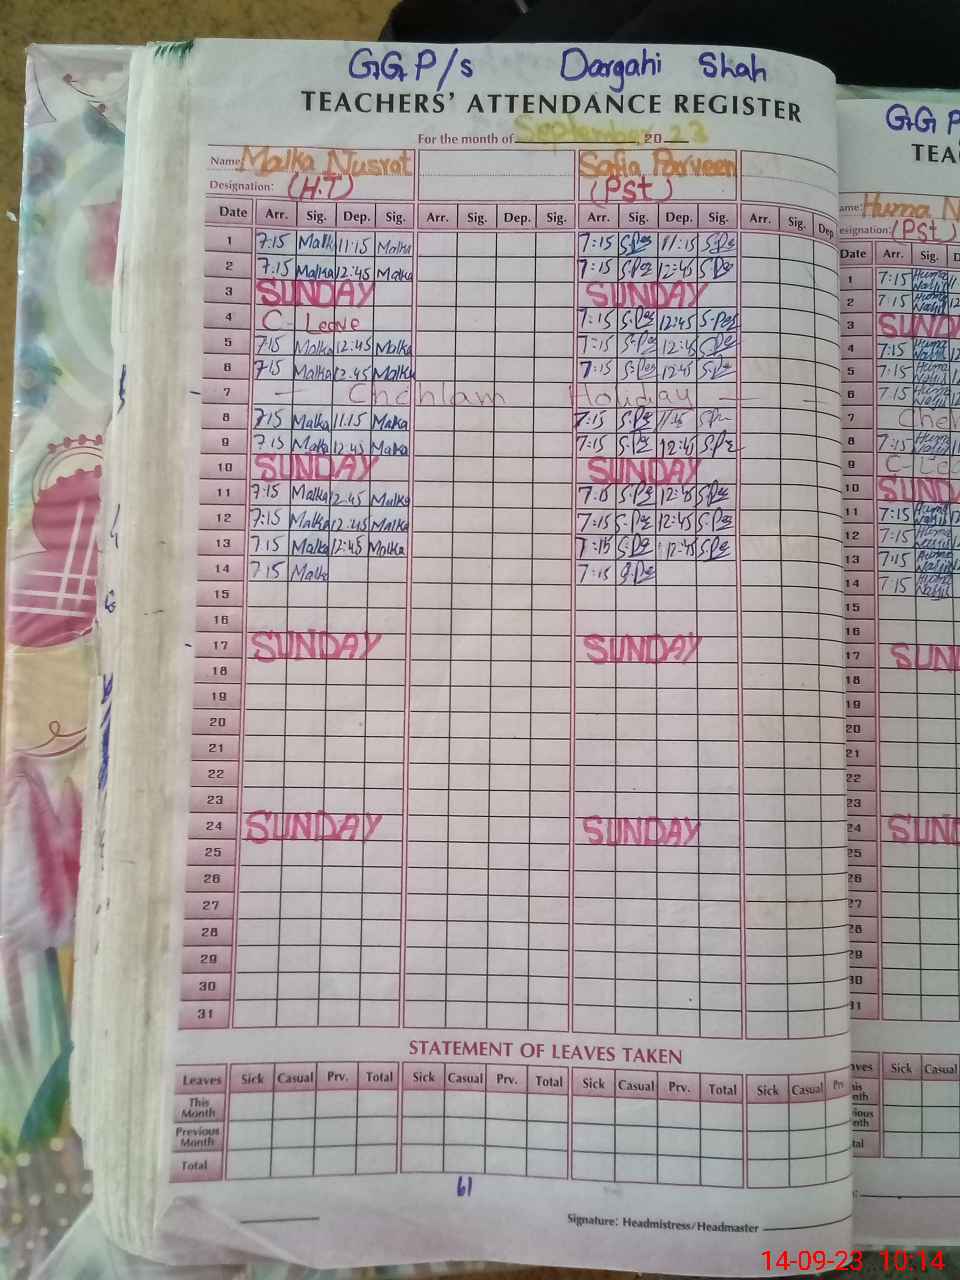 GGP/s Dargahi Shah
TEACHERS' ATTENDANCE REGISTER
For the month of September 2023
Name: Malka Nusrat Sofia Parveen
Designation: (H.T) (PST)
Date Arr. Sig. Dep. Sig. Arr. Sig. Dep. Sig. Arr. Sig. Dep. Sig. Arr. Sig. Dep.
1 7:15 Malk 11:15 Malka 7:15 S.Pe 11:15 S.Pe
2 7:15 Malka 12:45 Malka 7:15 S.Pe 12:45 S.Pe
3 SUNDAY SUNDAY
4 C- Leave 7:15 S.Pe 12:45 S.Pe
5 7:15 Malka 12:45 Malka 7:15 S.Pe 12:45 S.Pe
6 7:15 Malka 12:45 Malka 7:15 S.Pe 12:45 S.Pe
7 — Chehlam Holiday — —
8 7:15 Malka 11:15 Malka 7:15 S.Pe 11:15 S.Pe
9 7:15 Malka 12:45 Malka 7:15 S.Pe 12:45 S.Pe
10 SUNDAY SUNDAY
11 7:15 Malka 12:45 Malka 7:15 S.Pe 12:45 S.Pe
12 7:15 Malka 12:45 Malka 7:15 S.Pe 12:45 S.Pe
13 7:15 Malka 12:45 Malka 7:15 S.Pe 12:45 S.Pe
14 7:15 Malk 7:15 S.Pe
15
16
17 SUNDAY SUNDAY
18
19
20
21
22
23
24 SUNDAY SUNDAY
25
26
27
28
29
30
31
STATEMENT OF LEAVES TAKEN
Leaves Sick Casual Prv. Total Sick Casual Prv. Total Sick Casual Prv. Total Sick Casual
This Month
Previous Month
Total
61
Signature: Headmistress/Headmaster
GGP
TEA
Huma N
(PST)
Date Arr. Sig.
1 7:15 Huma
2 7:15 Huma
3 SUND
4 7:15 Huma
5 7:15 Huma
6 7:15 Huma
7 Cheh
8 7:15 Huma
9 C-Lea
10 SUND
11 7:15 Huma
12 7:15 Huma
13 7:15 Huma
14 7:15 Huma
15
16
17 SUN
18
19
20
21
22
23
24 SUN
25
26
27
28
29
30
31
Sick Casual
14-09-23 10:14